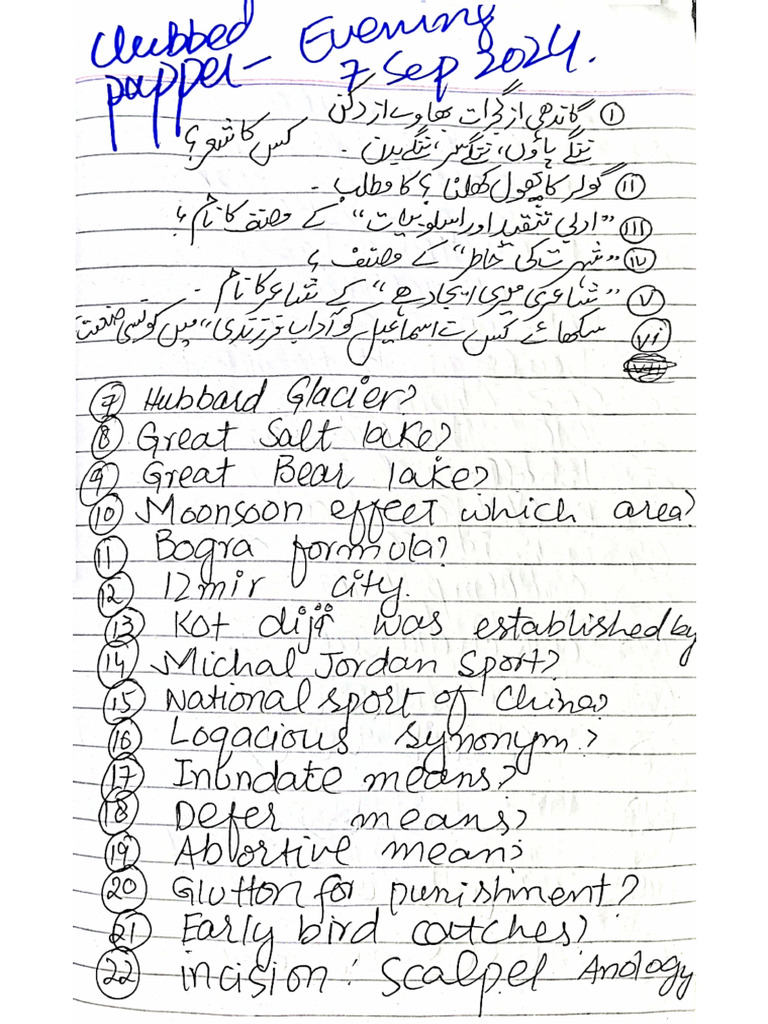 Clubbed Evening
papper- 7 Sep 2024.
① گاندھی از گجرات بھاوے از دکن
ننگے پاؤں، ننگے سر، ننگے بدن۔ کس کا شعر؟
ⅱ گولر کا پھول کھلنا؟ کا مطلب۔
ⅲ "ادبی تنقید اور اسلوبیات" کے مصنف کا نام؟
iv "شہرت کی خاطر" کے مصنف؟
v "شاعری میری ایجاد ہے" کے شاعر کا نام۔
vi سکھائے کس نے اسماعیل کو آداب فرزندی" میں کونسی صنعت
7 Hubbard Glacier?
8 Great Salt lake?
9 Great Bear lake?
10 Moonsoon effect which area?
11 Bogra formula?
12 Izmir city.
13 Kot diji was established by
14 Michal Jordan sport?
15 National sport of China?
16 Loqacious synonym?
17 Inundate means?
18 Defer means?
19 Abortive mean?
20 Glutton for punishment?
21 Early bird catches?
22 incision : Scalpel Anology